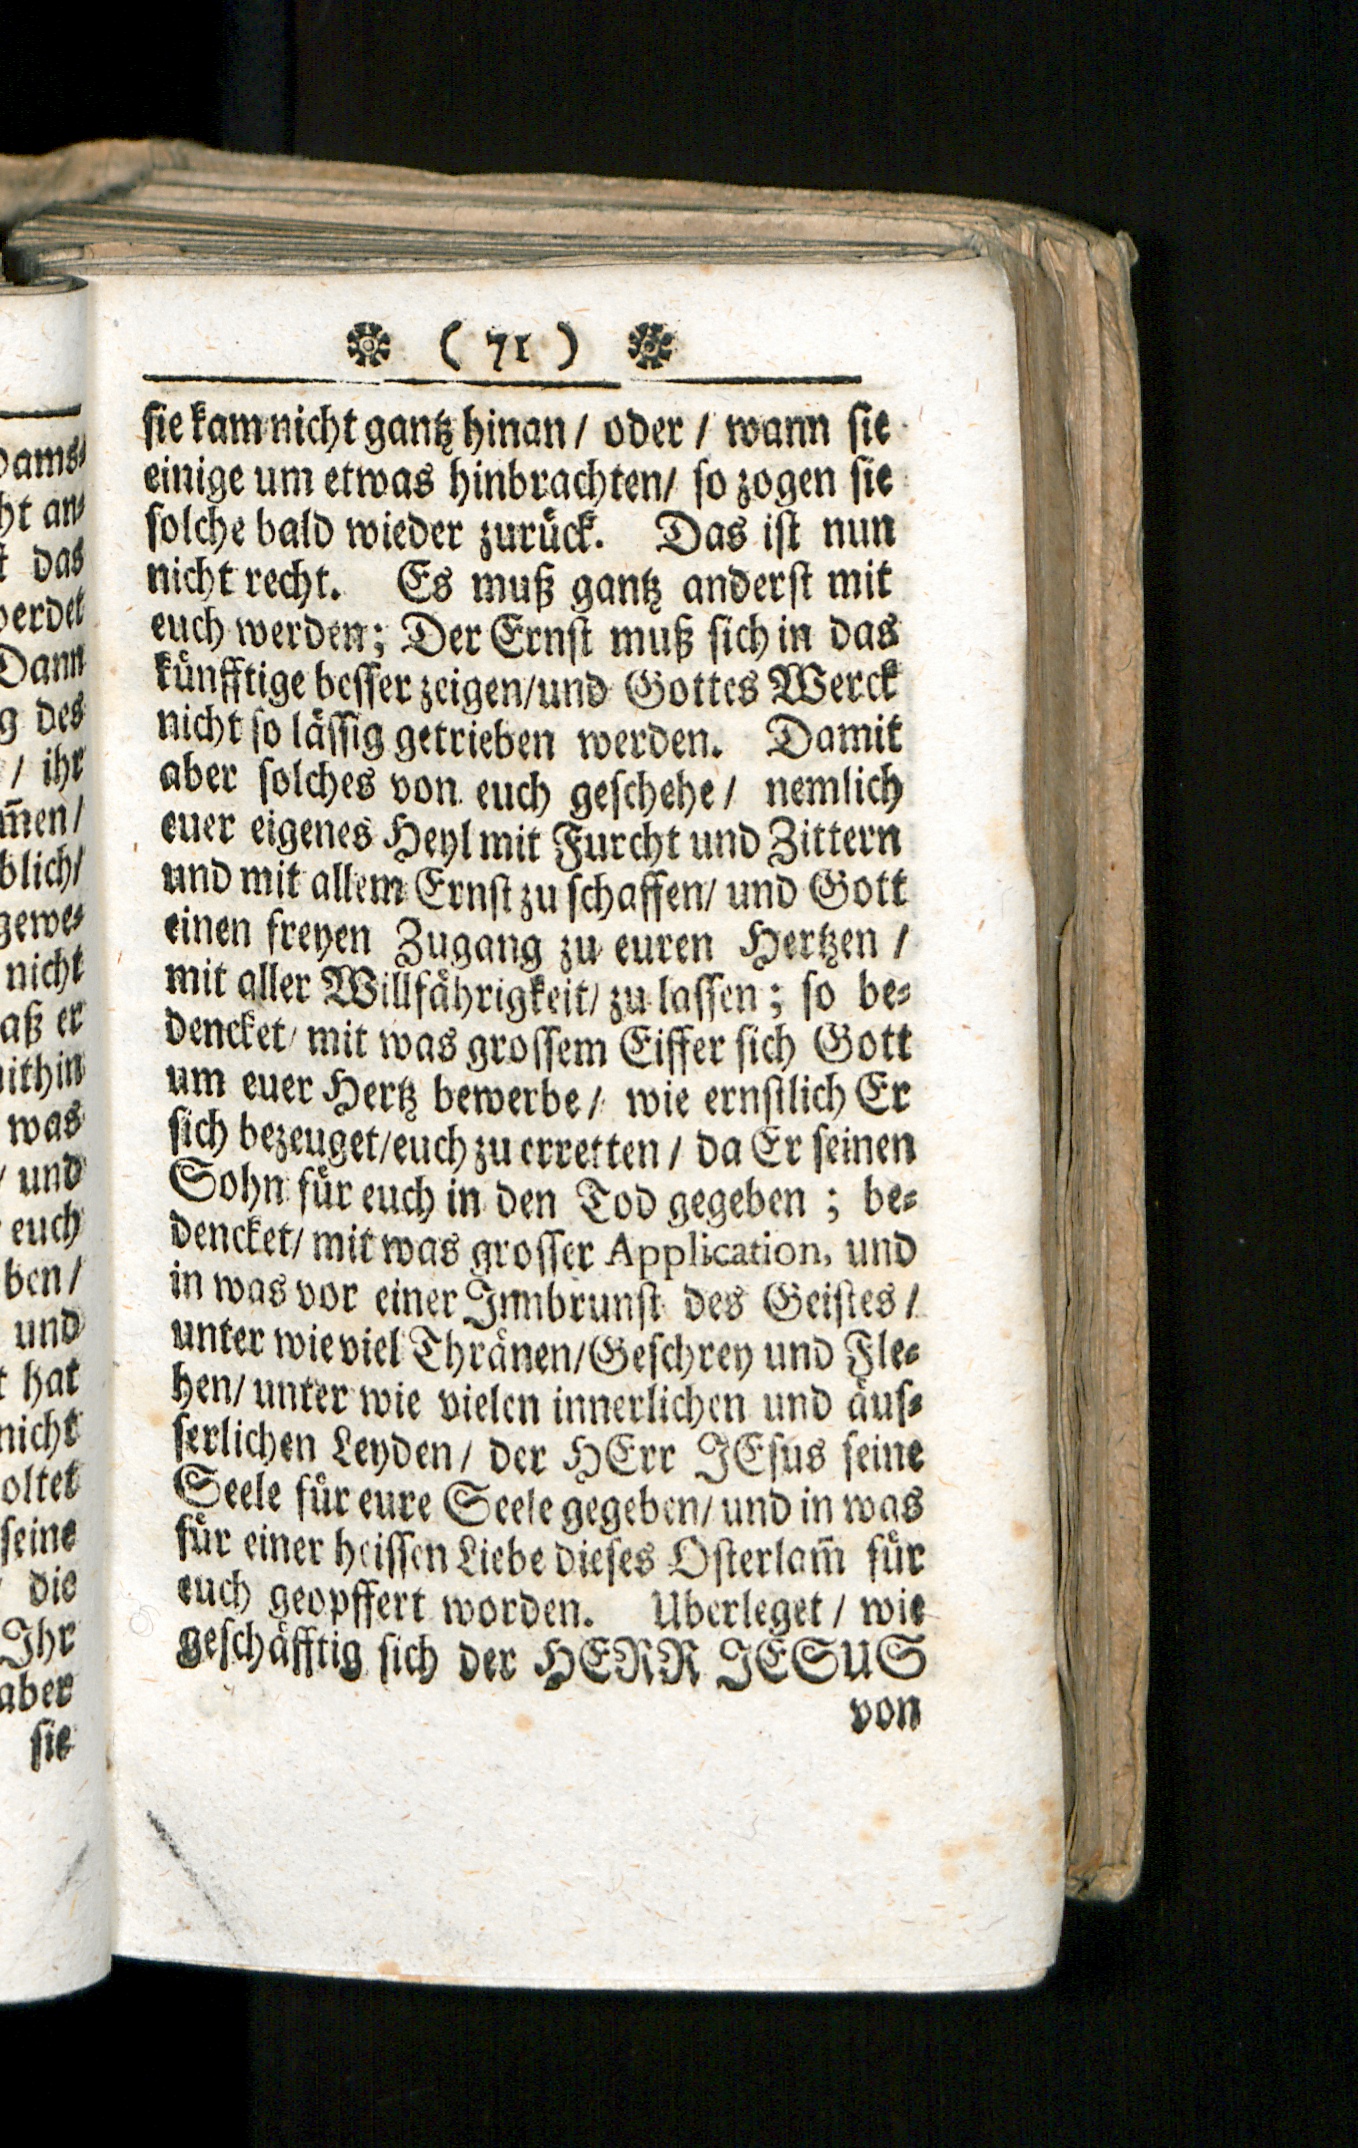 ( 71 )
sie kam nicht gantz hinan / oder / wann sie
einige um etwas hinbrachten / so zogen sie
solche bald wieder zurück. Das ist nun
nicht recht. Es muß gantz anderst mit
euch werden; Der Ernst muß sich in das
künfftige besser zeigen / und Gottes Werck
nicht so lässig getrieben werden. Damit
aber solches von euch geschehe / nemlich
euer eigenes Heyl mit Furcht und Zittern
und mit allem Ernst zu schaffen / und Gott
einen freyen Zugang zu euren Hertzen /
mit aller Willfährigkeit / zu lassen; so be-
dencket / mit was grossem Eiffer sich Gott
um euer Hertz bewerbe / wie ernstlich Er
sich bezeuget / euch zu erretten / da Er seinen
Sohn für euch in den Tod gegeben ; be-
dencket / mit was grosser Application, und
in was vor einer Innbrunst des Geistes /
unter wie viel Thränen / Geschrey und Fle-
hen / unter wie vielen innerlichen und äus-
serlichen Leyden / der HErr JEsus seine
Seele für eure Seele gegeben / und in was
für einer heissen Liebe dieses Osterlam̃ für
euch geopffert worden. Uberleget / wie
geschäfftig sich der HERR JESUS
von
dams-
ht an-
das
werdet
Dann
g des
/ ihr
m̃en /
blich /
gewe-
nicht
aß er
ithin
was
/ und
euch
ben /
und
hat
nicht
oltet
seine
die
Ihr
aber
sie